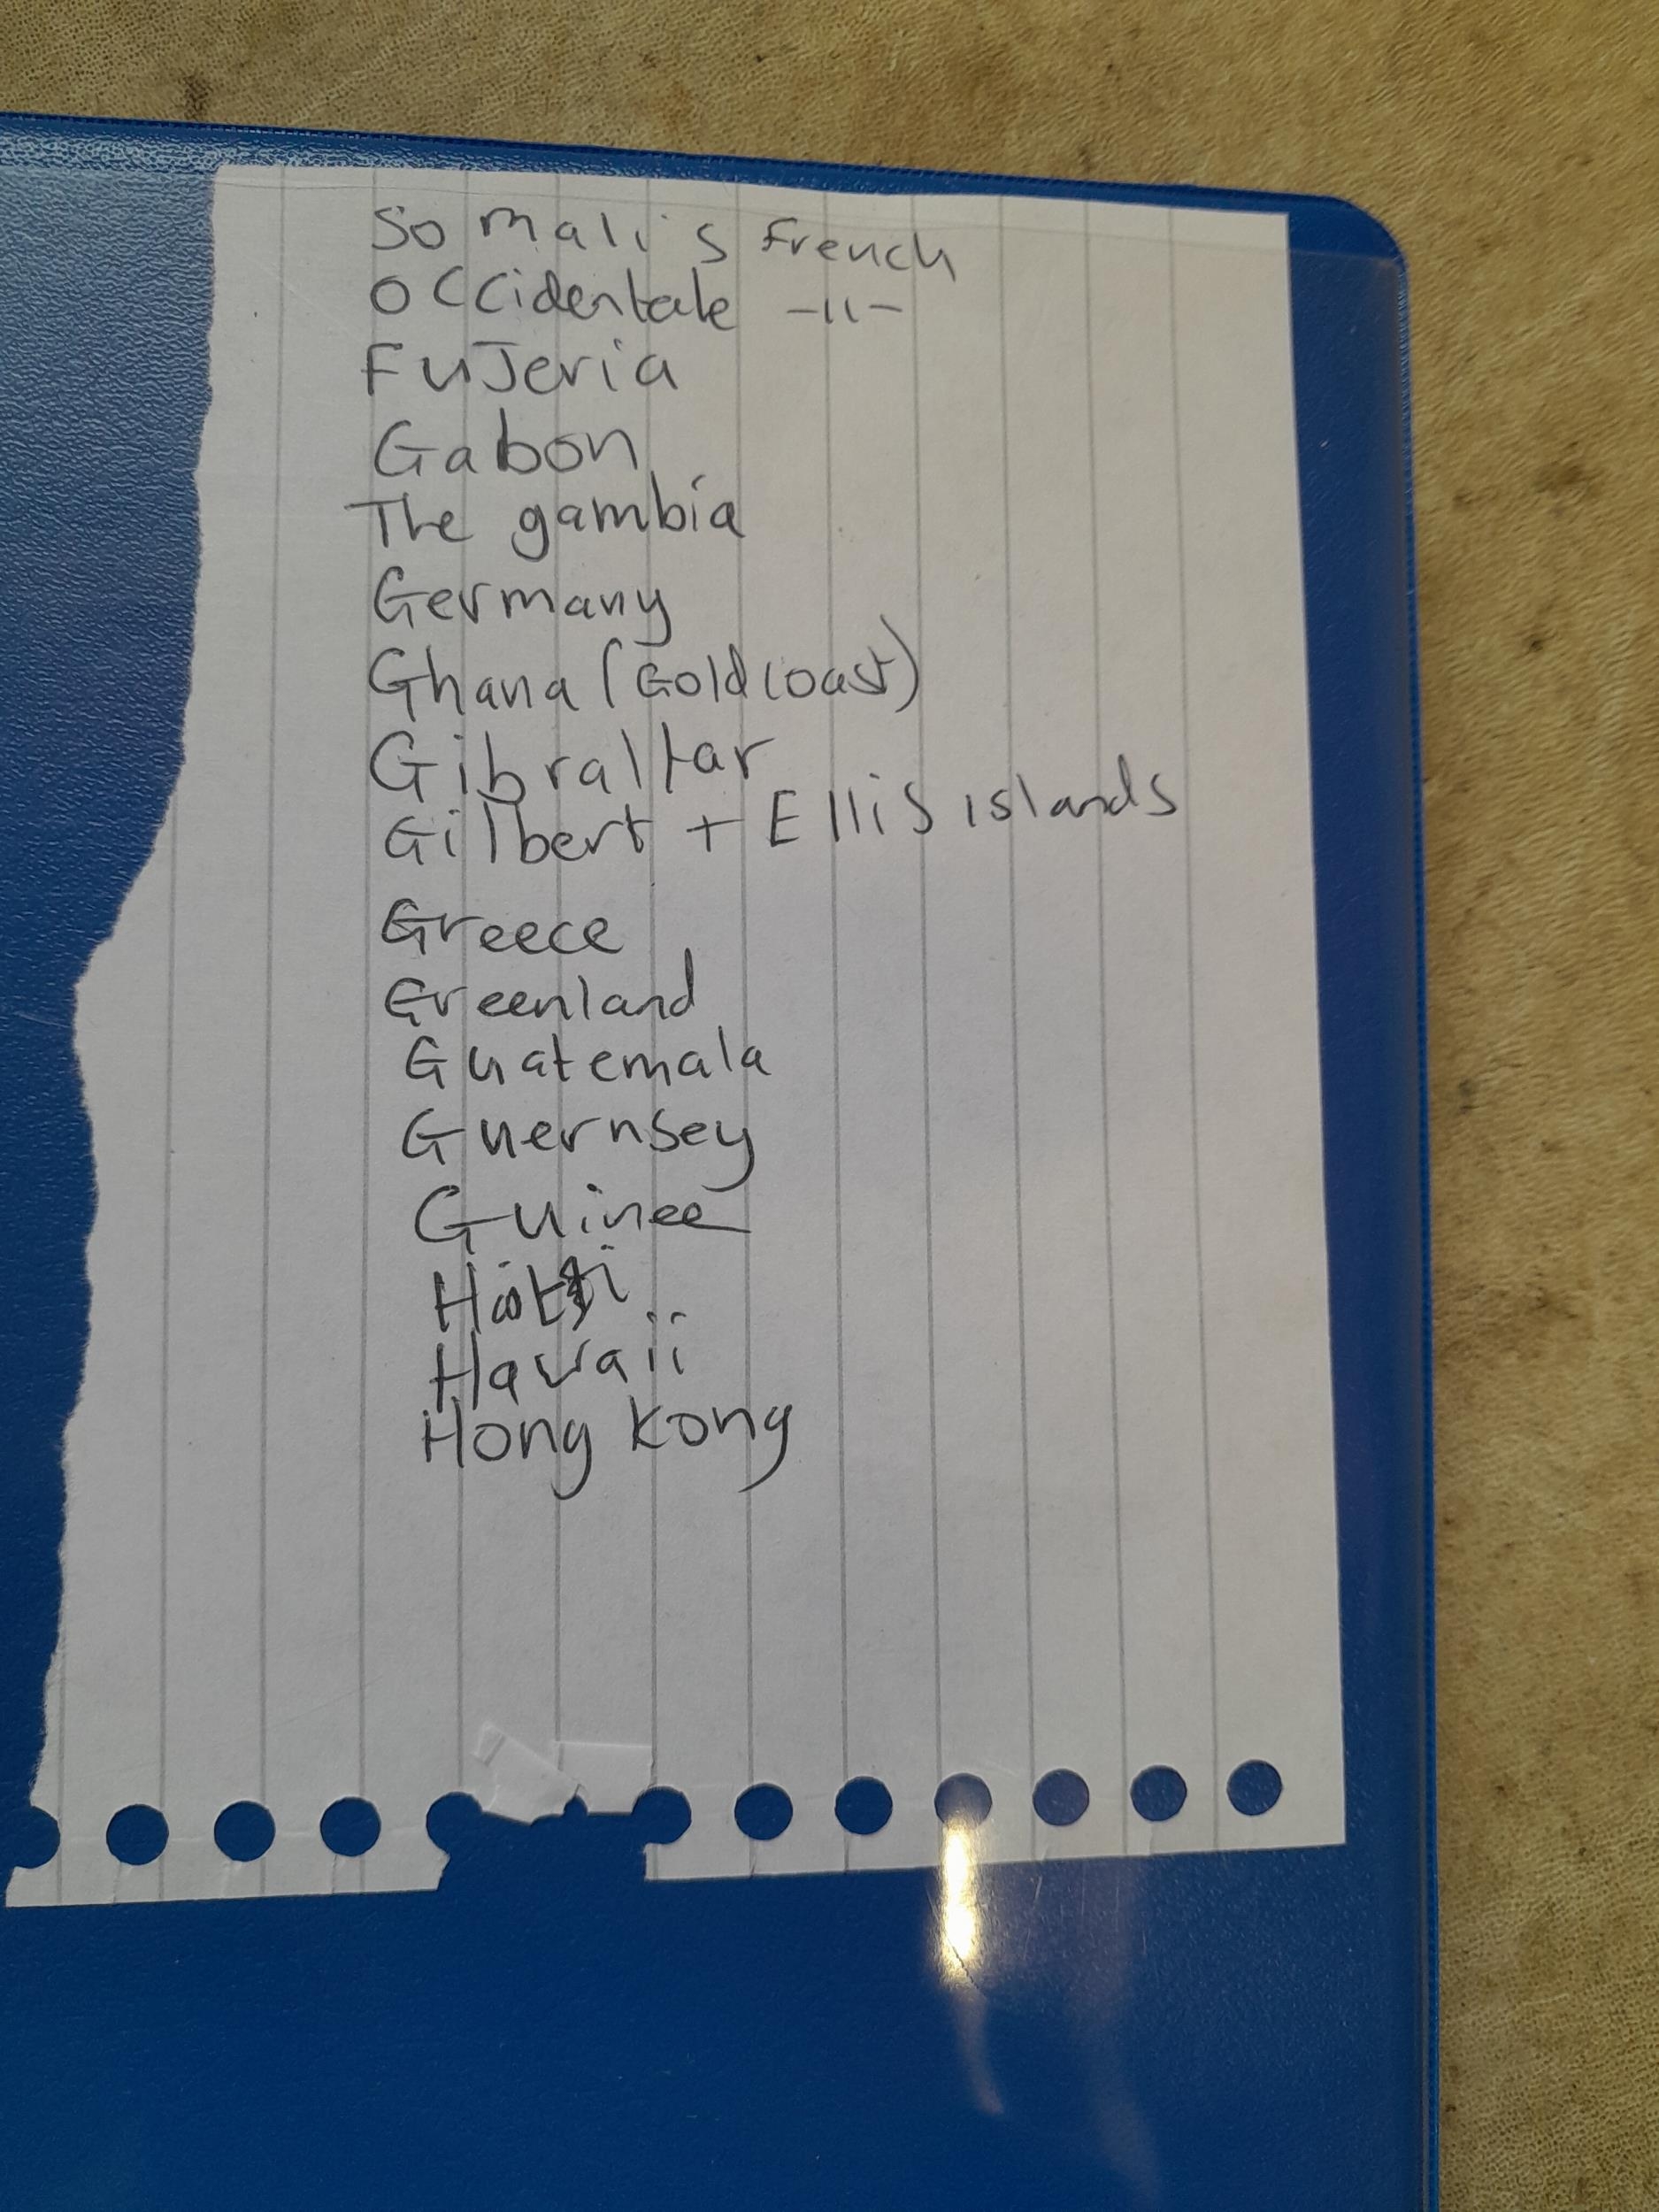 Somalis French
Occidentale -11-
FuJeria
Gabon
The gambia
Germany
Ghana (Gold coast)
Gibraltar
Gilbert + Ellis islands
Greece
Greenland
Guatemala
Guernsey
Guinee
Haiti
Hawaii
Hong Kong